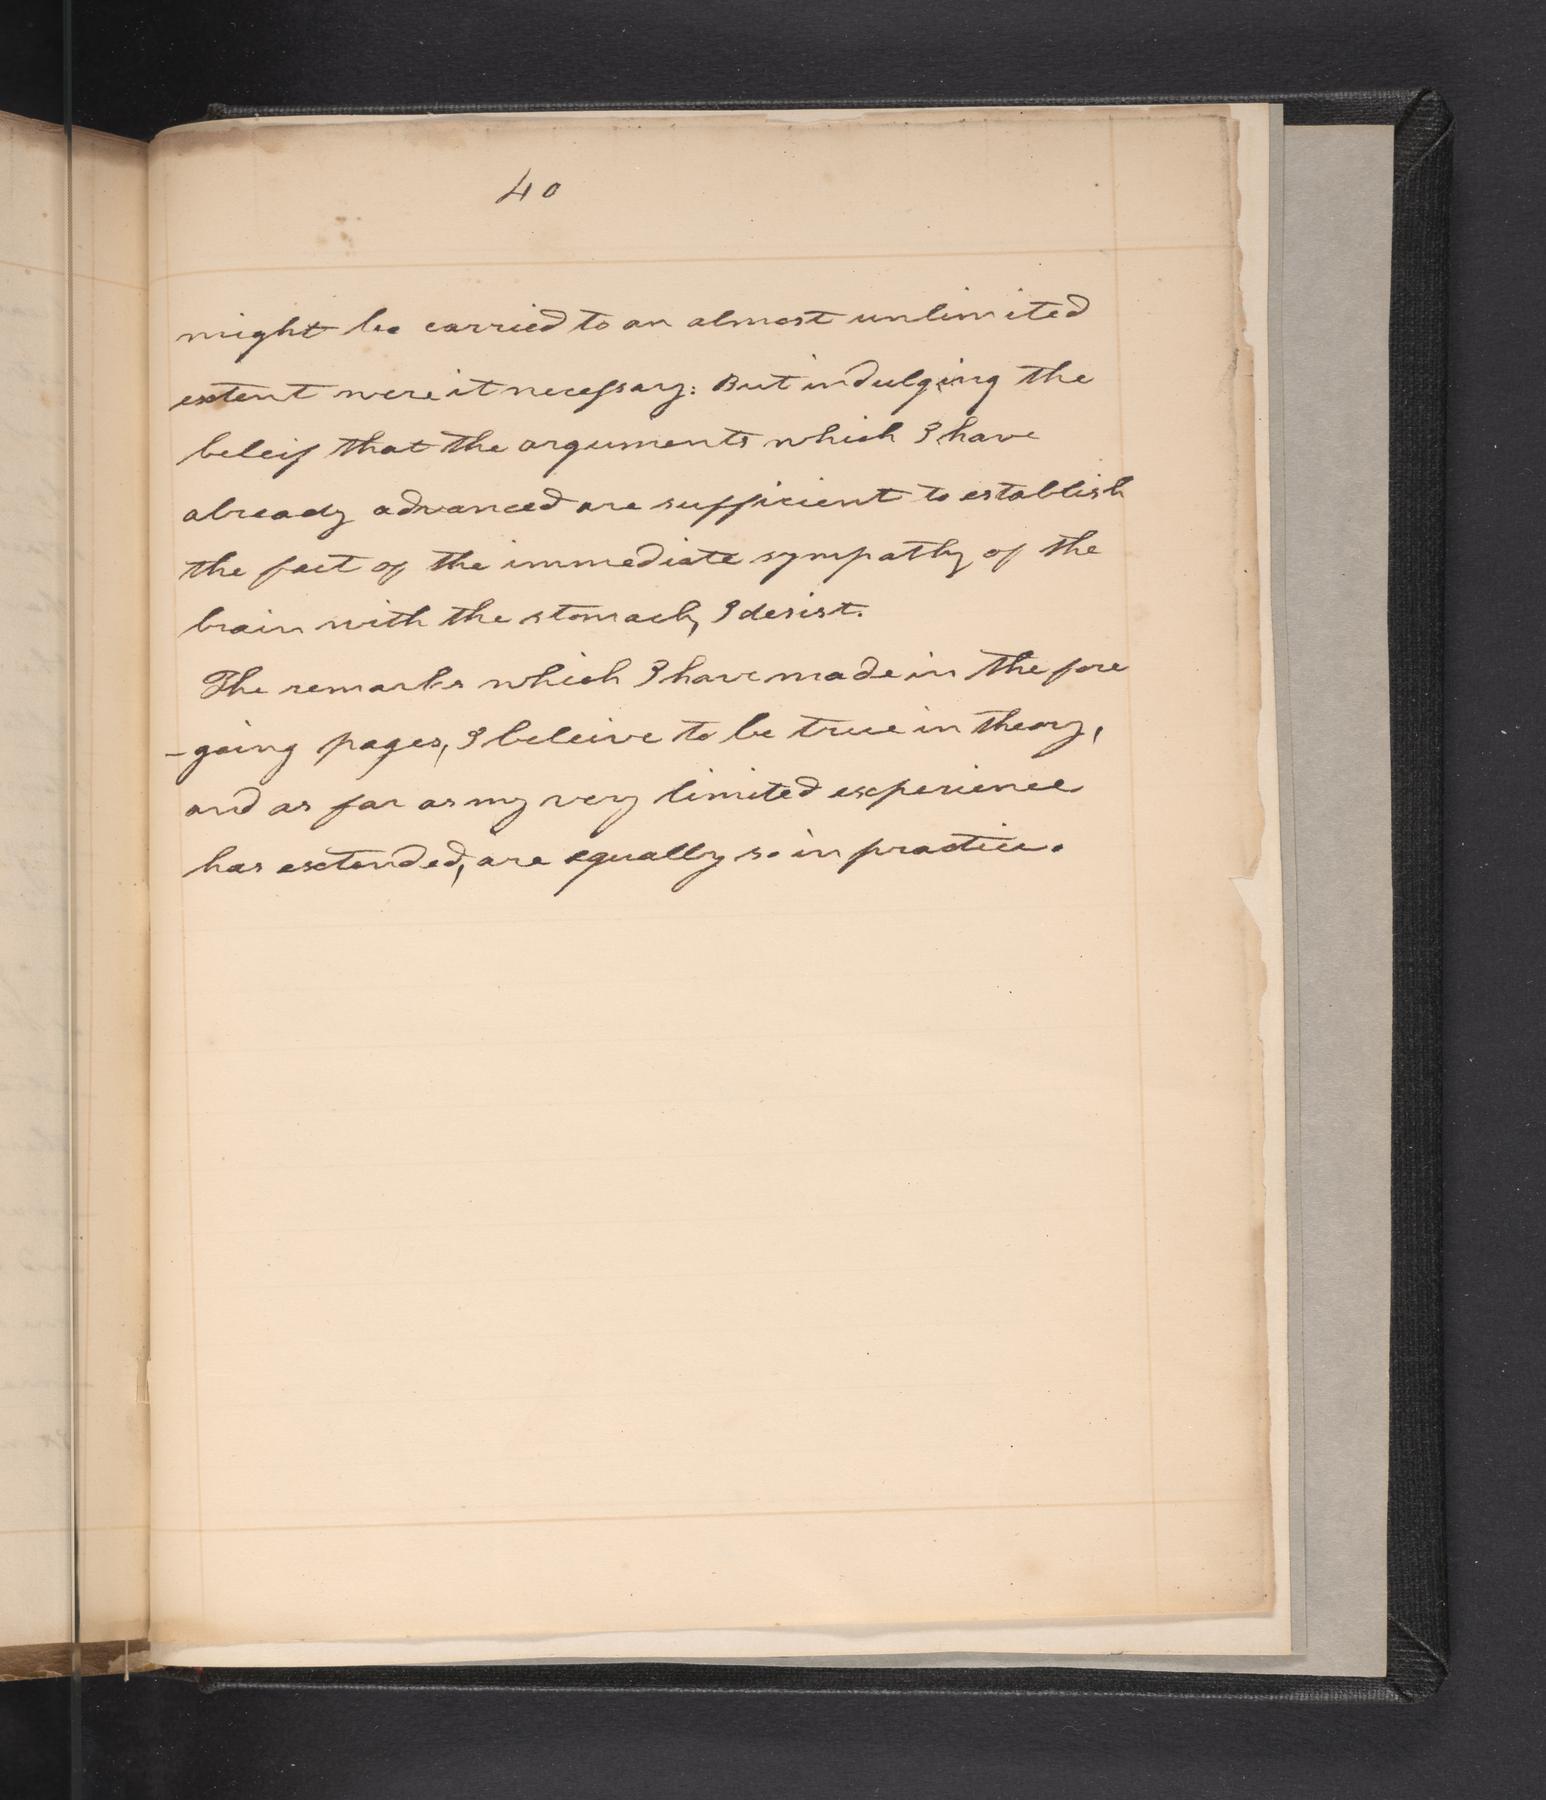 40
might be carried to an almost unlimited
extent were it necessary: But indulging the
beleif that the arguments which I have
already advanced are sufficient to establish
the fact of the immediate sympathy of the
brain with the stomach, I desist.
The remarks which I have made in the fore
-going pages, I beleive to be true in theory,
and as far as my very limited experience
has extended, are equally so in practice.